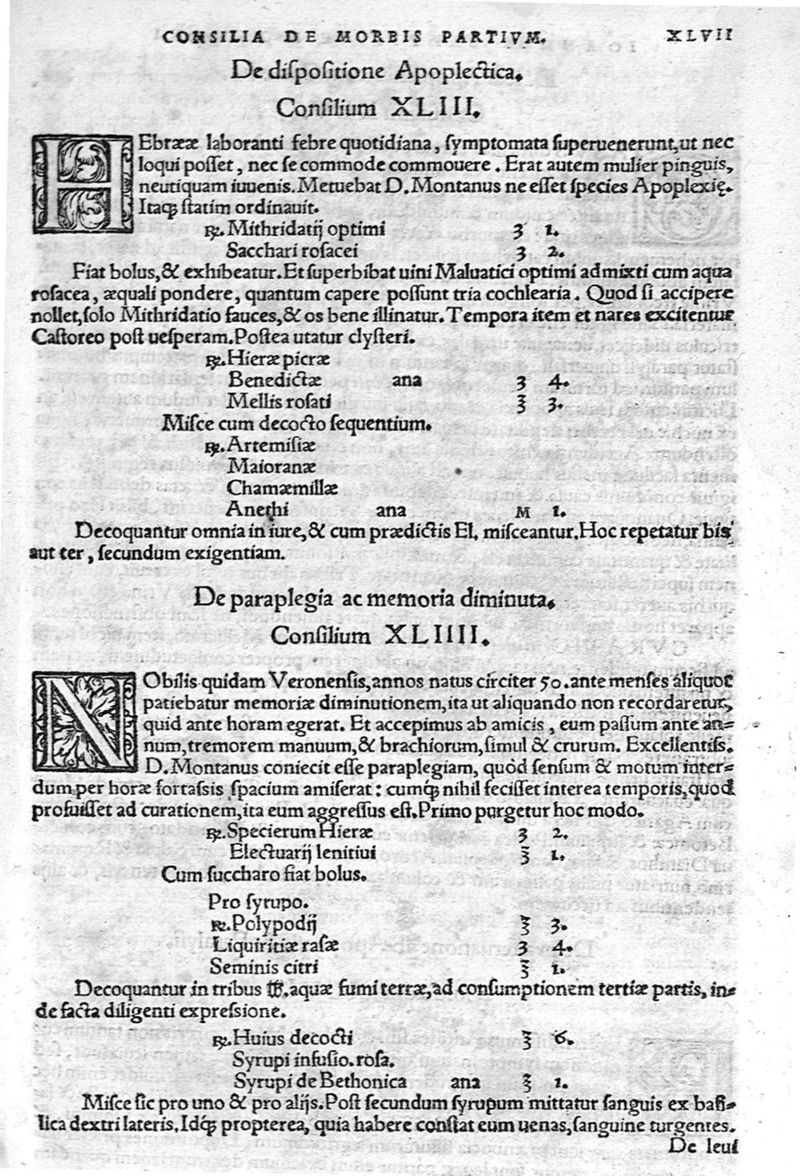 CONSILIA DE MORBIS PARTIVM. XLVII
De dispositione Apoplectica.
Consilium XLIII.
HEbrææ laboranti febre quotidiana, symptomata superuenerunt, ut nec
loqui posset, nec se commode commouere. Erat autem mulier pinguis,
neutiquam iuuenis. Metuebat D. Montanus ne esset species Apoplexię.
Itaq; statim ordinauit.
℞. Mithridatij optimi ʒ 1.
Sacchari rosacei ʒ 2.
Fiat bolus, & exhibeatur. Et superbibat uini Maluatici optimi admixti cum aqua
rosacea, æquali pondere, quantum capere possunt tria cochlearia. Quod si accipere
nollet, solo Mithridatio fauces, & os bene illinatur. Tempora item et nares excitentur
Castoreo post uesperam. Postea utatur clysteri.
℞. Hieræ picræ
Benedictæ ana ʒ 4.
Mellis rosati ℥ 3.
Misce cum decocto sequentium.
℞. Artemisiæ
Maioranæ
Chamæmillæ
Anethi ana M 1.
Decoquantur omnia in iure, & cum prædictis El. misceantur. Hoc repetatur bis
aut ter, secundum exigentiam.
De paraplegia ac memoria diminuta.
Consilium XLIIII.
NObilis quidam Veronensis, annos natus circiter 50. ante menses aliquot
patiebatur memoriæ diminutionem, ita ut aliquando non recordaretur,
quid ante horam egerat. Et accepimus ab amicis, eum passum ante an=
num, tremorem manuum, & brachiorum, simul & crurum. Excellentiss.
D. Montanus coniecit esse paraplegiam, quòd sensum & motum inter=
dum per horæ fortassis spacium amiserat: cumq; nihil fecisset interea temporis, quod
profuisset ad curationem, ita eum aggressus est. Primo purgetur hoc modo.
℞. Specierum Hieræ ʒ 2.
Electuarij lenitiui ℥ 1.
Cum succharo fiat bolus.
Pro syrupo.
℞. Polypodij ℥ 3.
Liquiritiæ rasæ ʒ 4.
Seminis citri ℥ 1.
Decoquantur in tribus ℔. aquæ fumi terræ, ad consumptionem tertiæ partis, in=
de facta diligenti expressione.
℞. Huius decocti ℥ 6.
Syrupi infusio. rosa.
Syrupi de Bethonica ana ℥ 1.
Misce sic pro uno & pro alijs. Post secundum syrupum mittatur sanguis ex basi=
lica dextri lateris. Idq; propterea, quia habere constat eum uenas, sanguine turgentes.
De leui